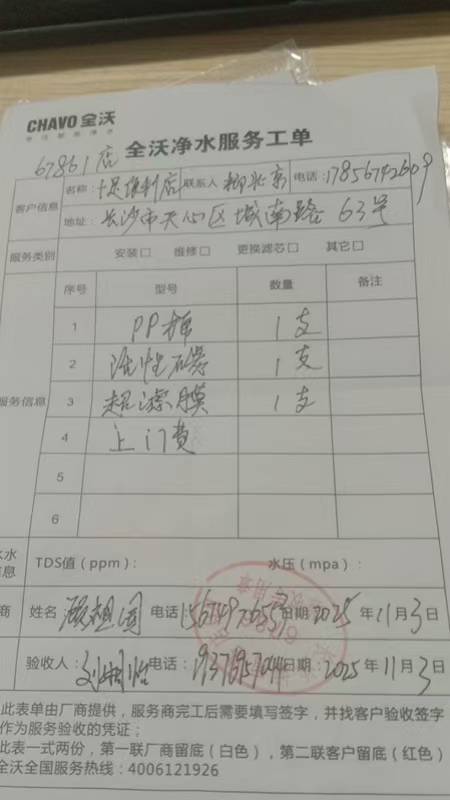 CHAVO 全沃
67861店 全沃净水服务工单
客户信息 名称: 十足便利店 联系人 柳北京 电话: 17856742609
地址: 长沙市天心区城南路 63号
服务类别 安装□ 维修□ 更换滤芯□ 其它□
序号 型号 数量 备注
1 PP棉 1支
2 活性碳 1支
服务信息 3 超滤膜 1支
4 上门费
5
6
TDS值(ppm): 水压(mpa):
商 姓名: 顾祖国 电话 日期 2025年11月3日
验收人: 电话: 日期: 2025年11月3日
此表单由厂商提供，服务商完工后需要填写签字，并找客户验收签字
作为服务验收的凭证；
此表一式两份，第一联厂商留底（白色），第二联客户留底（红色）
全沃全国服务热线：4006121926